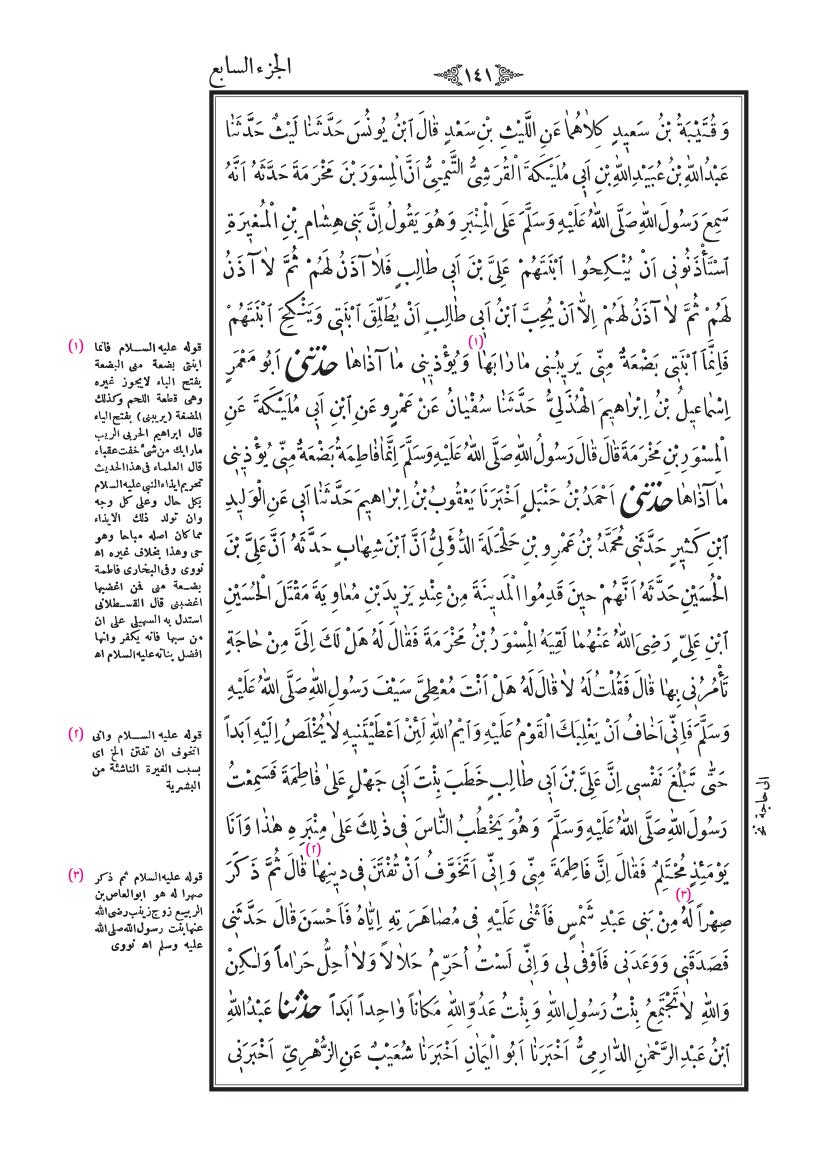 الجزء السابع
١٤١
وَقُتَيْبَةُ بْنُ سَعِيدٍ كِلَاهُمَا عَنِ اللَّيْثِ بْنِ سَعْدٍ قَالَ ابْنُ يُونُسَ حَدَّثَنَا لَيْثٌ حَدَّثَنَا
عَبْدُ اللَّهِ بْنُ عُبَيْدِ اللَّهِ بْنِ اَبِى مُلَيْكَةَ الْقُرَشِىُّ التَّيْمِىُّ اَنَّ الْمِسْوَرَ بْنَ مَخْرَمَةَ حَدَّثَهُ اَنَّهُ
سَمِعَ رَسُولَ اللَّهِ صَلَّى اللَّهُ عَلَيْهِ وَسَلَّمَ عَلَى الْمِنْبَرِ وَهُوَ يَقُولُ اِنَّ بَنِى هِشَامِ بْنِ الْمُغِيرَةِ
اسْتَأْذَنُونِى اَنْ يُنْكِحُوا ابْنَتَهُمْ عَلِىَّ بْنَ اَبِى طَالِبٍ فَلَا آذَنُ لَهُمْ ثُمَّ لَا آذَنُ
لَهُمْ ثُمَّ لَا آذَنُ لَهُمْ اِلَّا اَنْ يُحِبَّ ابْنُ اَبِى طَالِبٍ اَنْ يُطَلِّقَ ابْنَتِى وَيَنْكِحَ ابْنَتَهُمْ
فَاِنَّمَا ابْنَتِى بَضْعَةٌ مِنِّى يَرِيبُنِى مَا رَابَهَا (١) وَيُؤْذِينِى مَا آذَاهَا حَدَّثَنِى اَبُو مَعْمَرٍ
اِسْمَاعِيلُ بْنُ اِبْرَاهِيمَ الْهُذَلِىُّ حَدَّثَنَا سُفْيَانُ عَنْ عَمْرٍو عَنِ ابْنِ اَبِى مُلَيْكَةَ عَنِ
الْمِسْوَرِ بْنِ مَخْرَمَةَ قَالَ قَالَ رَسُولُ اللَّهِ صَلَّى اللَّهُ عَلَيْهِ وَسَلَّمَ اِنَّمَا فَاطِمَةُ بَضْعَةٌ مِنِّى يُؤْذِينِى
مَا آذَاهَا حَدَّثَنِى اَحْمَدُ بْنُ حَنْبَلٍ اَخْبَرَنَا يَعْقُوبُ بْنُ اِبْرَاهِيمَ حَدَّثَنَا اَبِى عَنِ الْوَلِيدِ
ابْنِ كَثِيرٍ حَدَّثَنِى مُحَمَّدُ بْنُ عَمْرِو بْنِ حَلْحَلَةَ الدُّؤَلِىُّ اَنَّ ابْنَ شِهَابٍ حَدَّثَهُ اَنَّ عَلِىَّ بْنَ
الْحُسَيْنِ حَدَّثَهُ اَنَّهُمْ حِينَ قَدِمُوا الْمَدِينَةَ مِنْ عِنْدِ يَزِيدَ بْنِ مُعَاوِيَةَ مَقْتَلَ الْحُسَيْنِ
ابْنِ عَلِىٍّ رَضِىَ اللَّهُ عَنْهُمَا لَقِيَهُ الْمِسْوَرُ بْنُ مَخْرَمَةَ فَقَالَ لَهُ هَلْ لَكَ اِلَىَّ مِنْ حَاجَةٍ
تَأْمُرُنِى بِهَا قَالَ فَقُلْتُ لَهُ لَا قَالَ لَهُ هَلْ اَنْتَ مُعْطِىَّ سَيْفَ رَسُولِ اللَّهِ صَلَّى اللَّهُ عَلَيْهِ
وَسَلَّمَ فَاِنِّى اَخَافُ اَنْ يَغْلِبَكَ الْقَوْمُ عَلَيْهِ وَايْمُ اللَّهِ لَئِنْ اَعْطَيْتَنِيهِ لَا يُخْلَصُ اِلَيْهِ اَبَداً
حَتَّى تَبْلُغَ نَفْسِى اِنَّ عَلِىَّ بْنَ اَبِى طَالِبٍ خَطَبَ بِنْتَ اَبِى جَهْلٍ عَلَى فَاطِمَةَ فَسَمِعْتُ
رَسُولَ اللَّهِ صَلَّى اللَّهُ عَلَيْهِ وَسَلَّمَ وَهُوَ يَخْطُبُ النَّاسَ فِى ذٰلِكَ عَلَى مِنْبَرِهِ هٰذَا وَاَنَا
يَوْمَئِذٍ مُحْتَلِمٌ فَقَالَ اِنَّ فَاطِمَةَ مِنِّى وَاِنِّى اَتَخَوَّفُ اَنْ تُفْتَنَ فِى دِينِهَا (٢) قَالَ ثُمَّ ذَكَرَ
صِهْراً لَهُ (٣) مِنْ بَنِى عَبْدِ شَمْسٍ فَاَثْنَى عَلَيْهِ فِى مُصَاهَرَتِهِ اِيَّاهُ فَاَحْسَنَ قَالَ حَدَّثَنِى
فَصَدَقَنِى وَوَعَدَنِى فَاَوْفَى لِى وَاِنِّى لَسْتُ اُحَرِّمُ حَلَالاً وَلَا اُحِلُّ حَرَاماً وَلٰكِنْ
وَاللَّهِ لَا تَجْتَمِعُ بِنْتُ رَسُولِ اللَّهِ وَبِنْتُ عَدُوِّ اللَّهِ مَكَاناً وَاحِداً اَبَداً حَدَّثَنَا عَبْدُ اللَّهِ
ابْنُ عَبْدِ الرَّحْمٰنِ الدَّارِمِىُّ اَخْبَرَنَا اَبُو الْيَمَانِ اَخْبَرَنَا شُعَيْبٌ عَنِ الزُّهْرِىِّ اَخْبَرَنِى
(١) قوله عليه السلام فانما
ابنتى بضعة منى البضعة
بفتح الباء لايجوز غيره
وهى قطعة اللحم وكذلك
المضغة (يريبنى) بفتح الياء
قال ابراهيم الحربى الريب
مارابك من شئ خفت عقباه
قال العلماء فى هذا الحديث
تحريم ايذاء النبى عليه السلام
بكل حال وعلى كل وجه
وان تولد ذلك الايذاء
مما كان اصله مباحا وهو
حى وهذا بخلاف غيره اه
نووى وفى البخارى فاطمة
بضعة منى فمن اغضبها
اغضبنى قال القسطلانى
استدل به السهيلى على ان
من سبها فانه يكفر وانها
افضل بناته عليه السلام اه
(٢) قوله عليه السلام وانى
اتخوف ان تفتن الخ اى
بسبب الغيرة الناشئة من
البشرية
(٣) قوله عليه السلام ثم ذكر
صهرا له هو ابو العاص بن
الربيع زوج زينب رضى الله
عنها بنت رسول الله صلى الله
عليه وسلم اه نووى
الى حاجة نخ